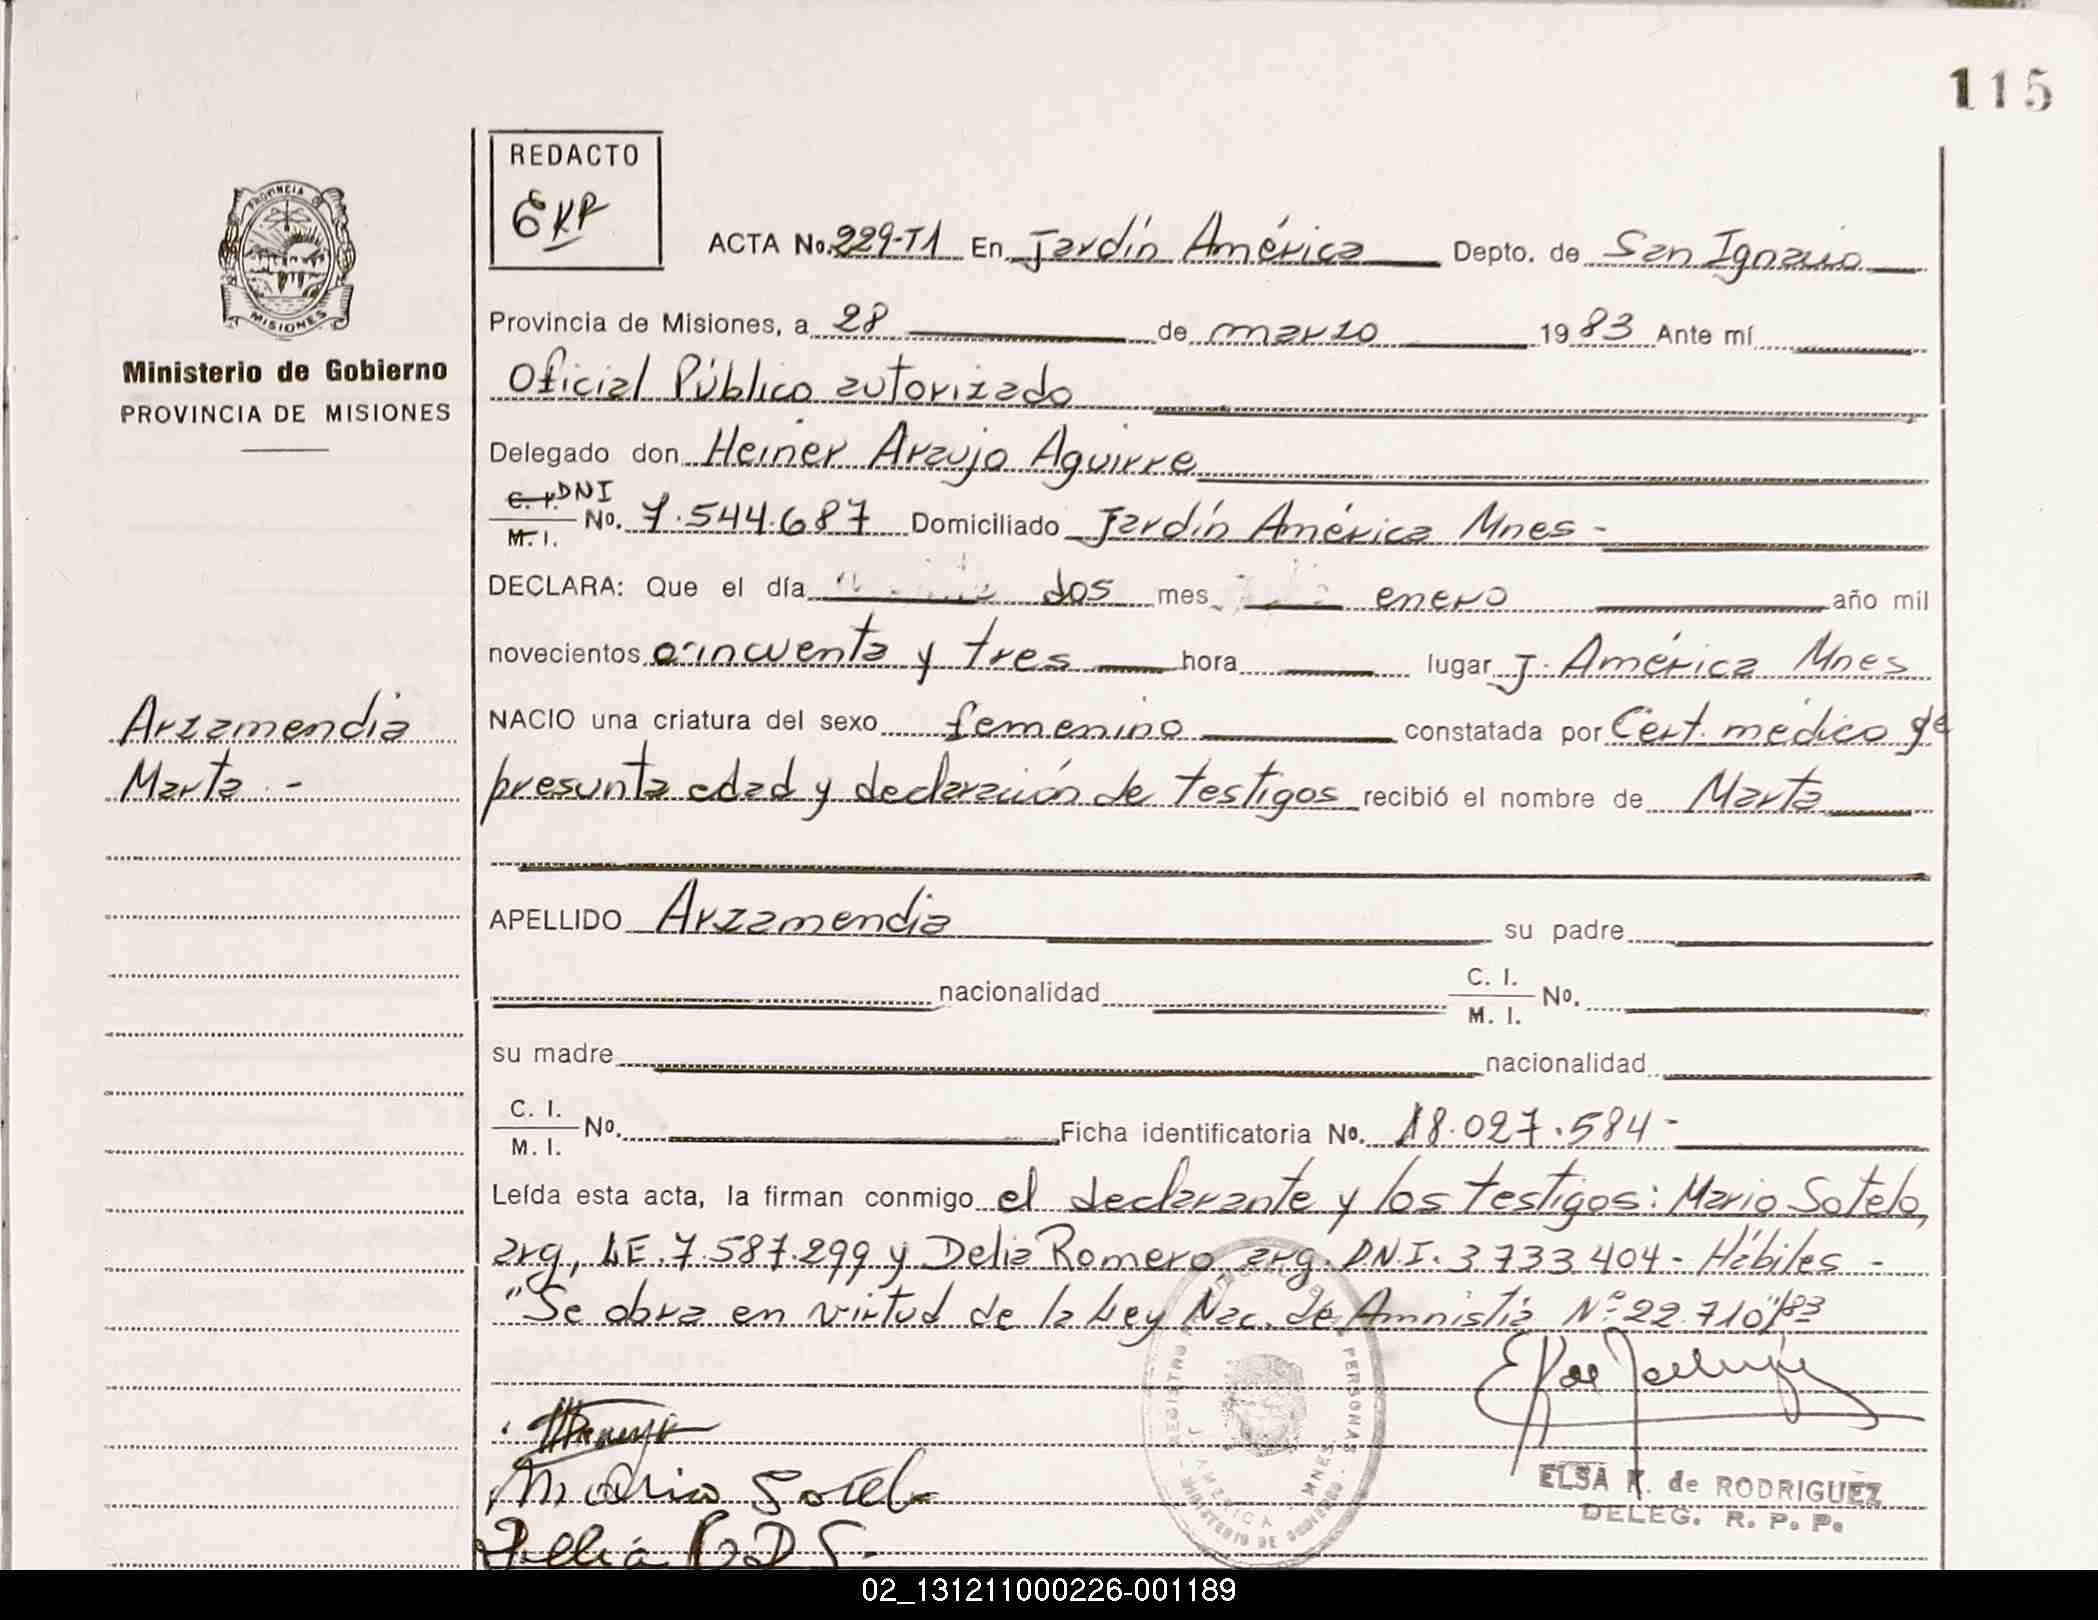 115
REDACTO
EKR
PROVINCIA
MISIONES
Ministerio de Gobierno
PROVINCIA DE MISIONES
ACTA No. 229-T1 En Jardín América Depto. de San Ignacio
Provincia de Misiones, a 28 de marzo 1983 Ante mí
Oficial Público autorizado
Delegado don Heiner Araujo Aguirre
C. I. DNI
M. I. No. 7.544.687 Domiciliado Jardín América Mnes -
DECLARA: Que el día dos mes enero año mil
novecientos cincuenta y tres hora lugar J. América Mnes
Arzamendia
Marta -
NACIO una criatura del sexo femenino constatada por Cert. médico de
presunta edad y declaración de testigos recibió el nombre de Marta
APELLIDO Arzamendia su padre
nacionalidad C. I. M. I. No.
su madre nacionalidad
C. I. M. I. No. Ficha identificatoria No. 18.027.584 -
Leída esta acta, la firman conmigo el declarante y los testigos: Mario Sotelo,
arg, LE. 7.587.299 y Delia Romero arg. D.N.I. 3.733.404 - Hábiles -
"Se obra en virtud de la Ley Nac. de Amnistía Nº 22.710"/83
Mario Sotelo
REGISTRO PERSONAS
J. AMERICA - MNES.
MINISTERIO DE GOBIERNO
ELSA K. de RODRIGUEZ
DELEG. R. P. P.
02_131211000226-001189